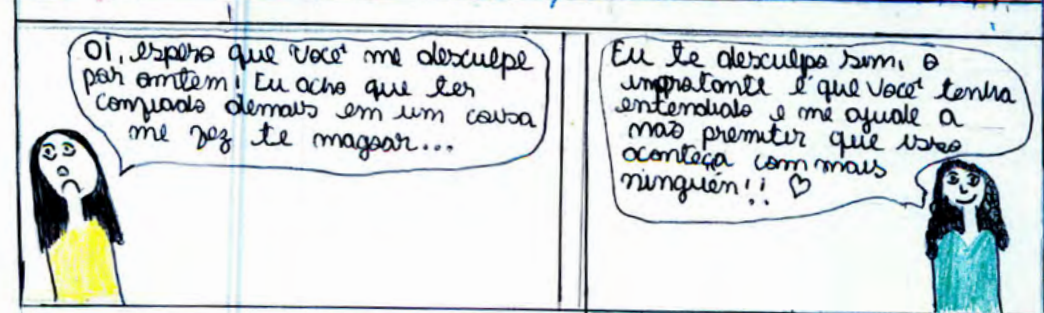 Oi, espero que você me desculpe
por omtem! Eu acho que ter
confiado demais em um causa
me fez te magoar...
Eu te desculpo sim, o
improtante é que você tenha
entendido e me ajude a
não premiter que isso
aconteça com mais
ninguén!! ♡